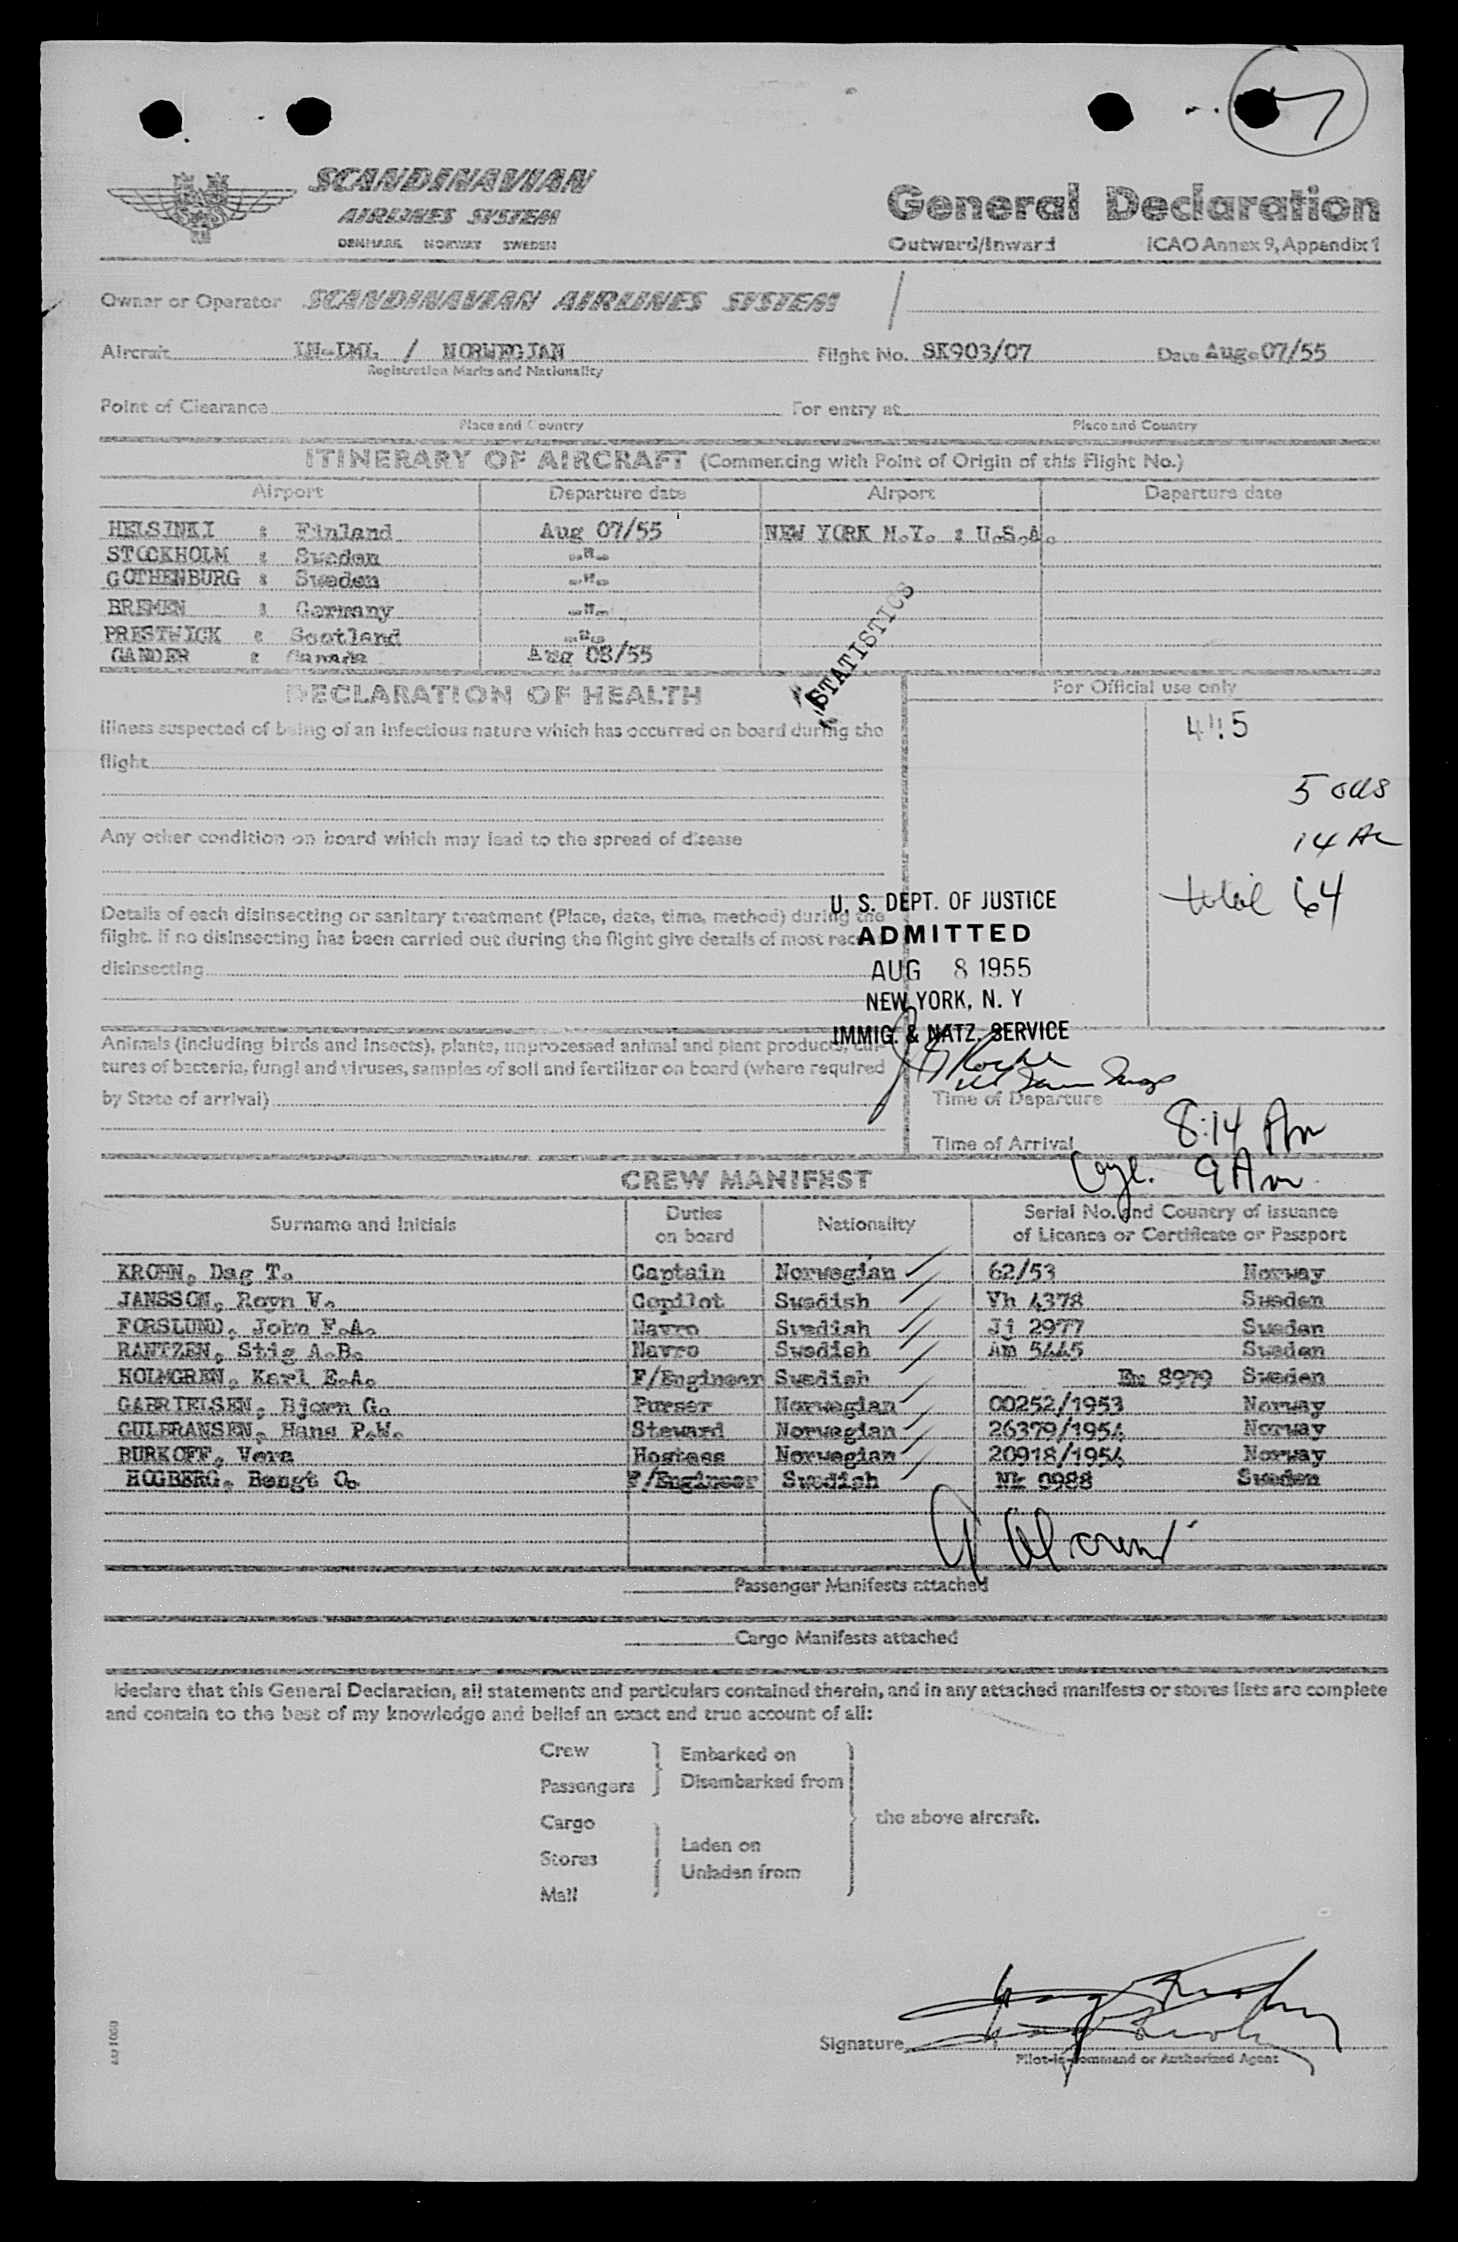 SCANDINAVIAN
AIRLINES SYSTEM
DENMARK NORWAY SWEDEN
General Declaration
Outward/Inward ICAO Annex 9, Appendix 1
Owner or Operator SCANDINAVIAN AIRLINES SYSTEM
Aircraft LN-LML / NORWEGIAN Flight No. SK903/07 Date Aug. 07/55
Registration Marks and Nationality
Point of Clearance For entry at
Place and Country Place and Country
ITINERARY OF AIRCRAFT (Commencing with Point of Origin of this Flight No.)
Airport Departure date Airport Departure date
HELSINKI : Finland Aug 07/55 NEW YORK N.Y. : U.S.A.
STOCKHOLM : Sweden -"-
GOTHENBURG : Sweden -"-
BREMEN : Germany -"-
PRESTWICK : Scotland -"-
GANDER : Canada Aug 08/55
"STATISTICS"
DECLARATION OF HEALTH
For Official use only
Illness suspected of being of an infectious nature which has occurred on board during the
flight
445
5 
14 
Any other condition on board which may lead to the spread of disease
total 64
Details of each disinsecting or sanitary treatment (Place, date, time, method) during the
flight. If no disinsecting has been carried out during the flight give details of most recent
disinsecting
U. S. DEPT. OF JUSTICE
ADMITTED
AUG 8 1955
NEW YORK, N. Y
IMMIG. & NATZ. SERVICE
Animals (including birds and insects), plants, unprocessed animal and plant products, cul-
tures of bacteria, fungi and viruses, samples of soil and fertilizer on board (where required
by State of arrival)
Time of Departure
Time of Arrival 8:14 Am
9 Am
CREW MANIFEST
Surname and Initials Duties on board Nationality Serial No. and Country of issuance of Licence or Certificate or Passport
KROHN, Dag T. Captain Norwegian 62/53 Norway
JANSSON, Royn V. Copilot Swedish Vh 4378 Sweden
FORSLUND, John F.A. Navro Swedish Jj 2977 Sweden
RANTZEN, Stig A.B. Navro Swedish Am 5445 Sweden
HOLMGREN, Karl E.A. F/Engineer Swedish Em 8979 Sweden
GABRIELSEN, Bjorn G. Purser Norwegian 00252/1953 Norway
GULBRANSEN, Hans P.W. Steward Norwegian 26379/1954 Norway
BURKOFF, Vera Hostess Norwegian 20918/1954 Norway
HOGBERG, Bengt O. F/Engineer Swedish Nk 0988 Sweden
Passenger Manifests attached
Cargo Manifests attached
I declare that this General Declaration, all statements and particulars contained therein, and in any attached manifests or stores lists are complete
and contain to the best of my knowledge and belief an exact and true account of all:
Crew Embarked on
Passengers Disembarked from
Cargo the above aircraft.
Laden on
Stores
Unladen from
Mail
Signature
Pilot-in-command or Authorized Agent